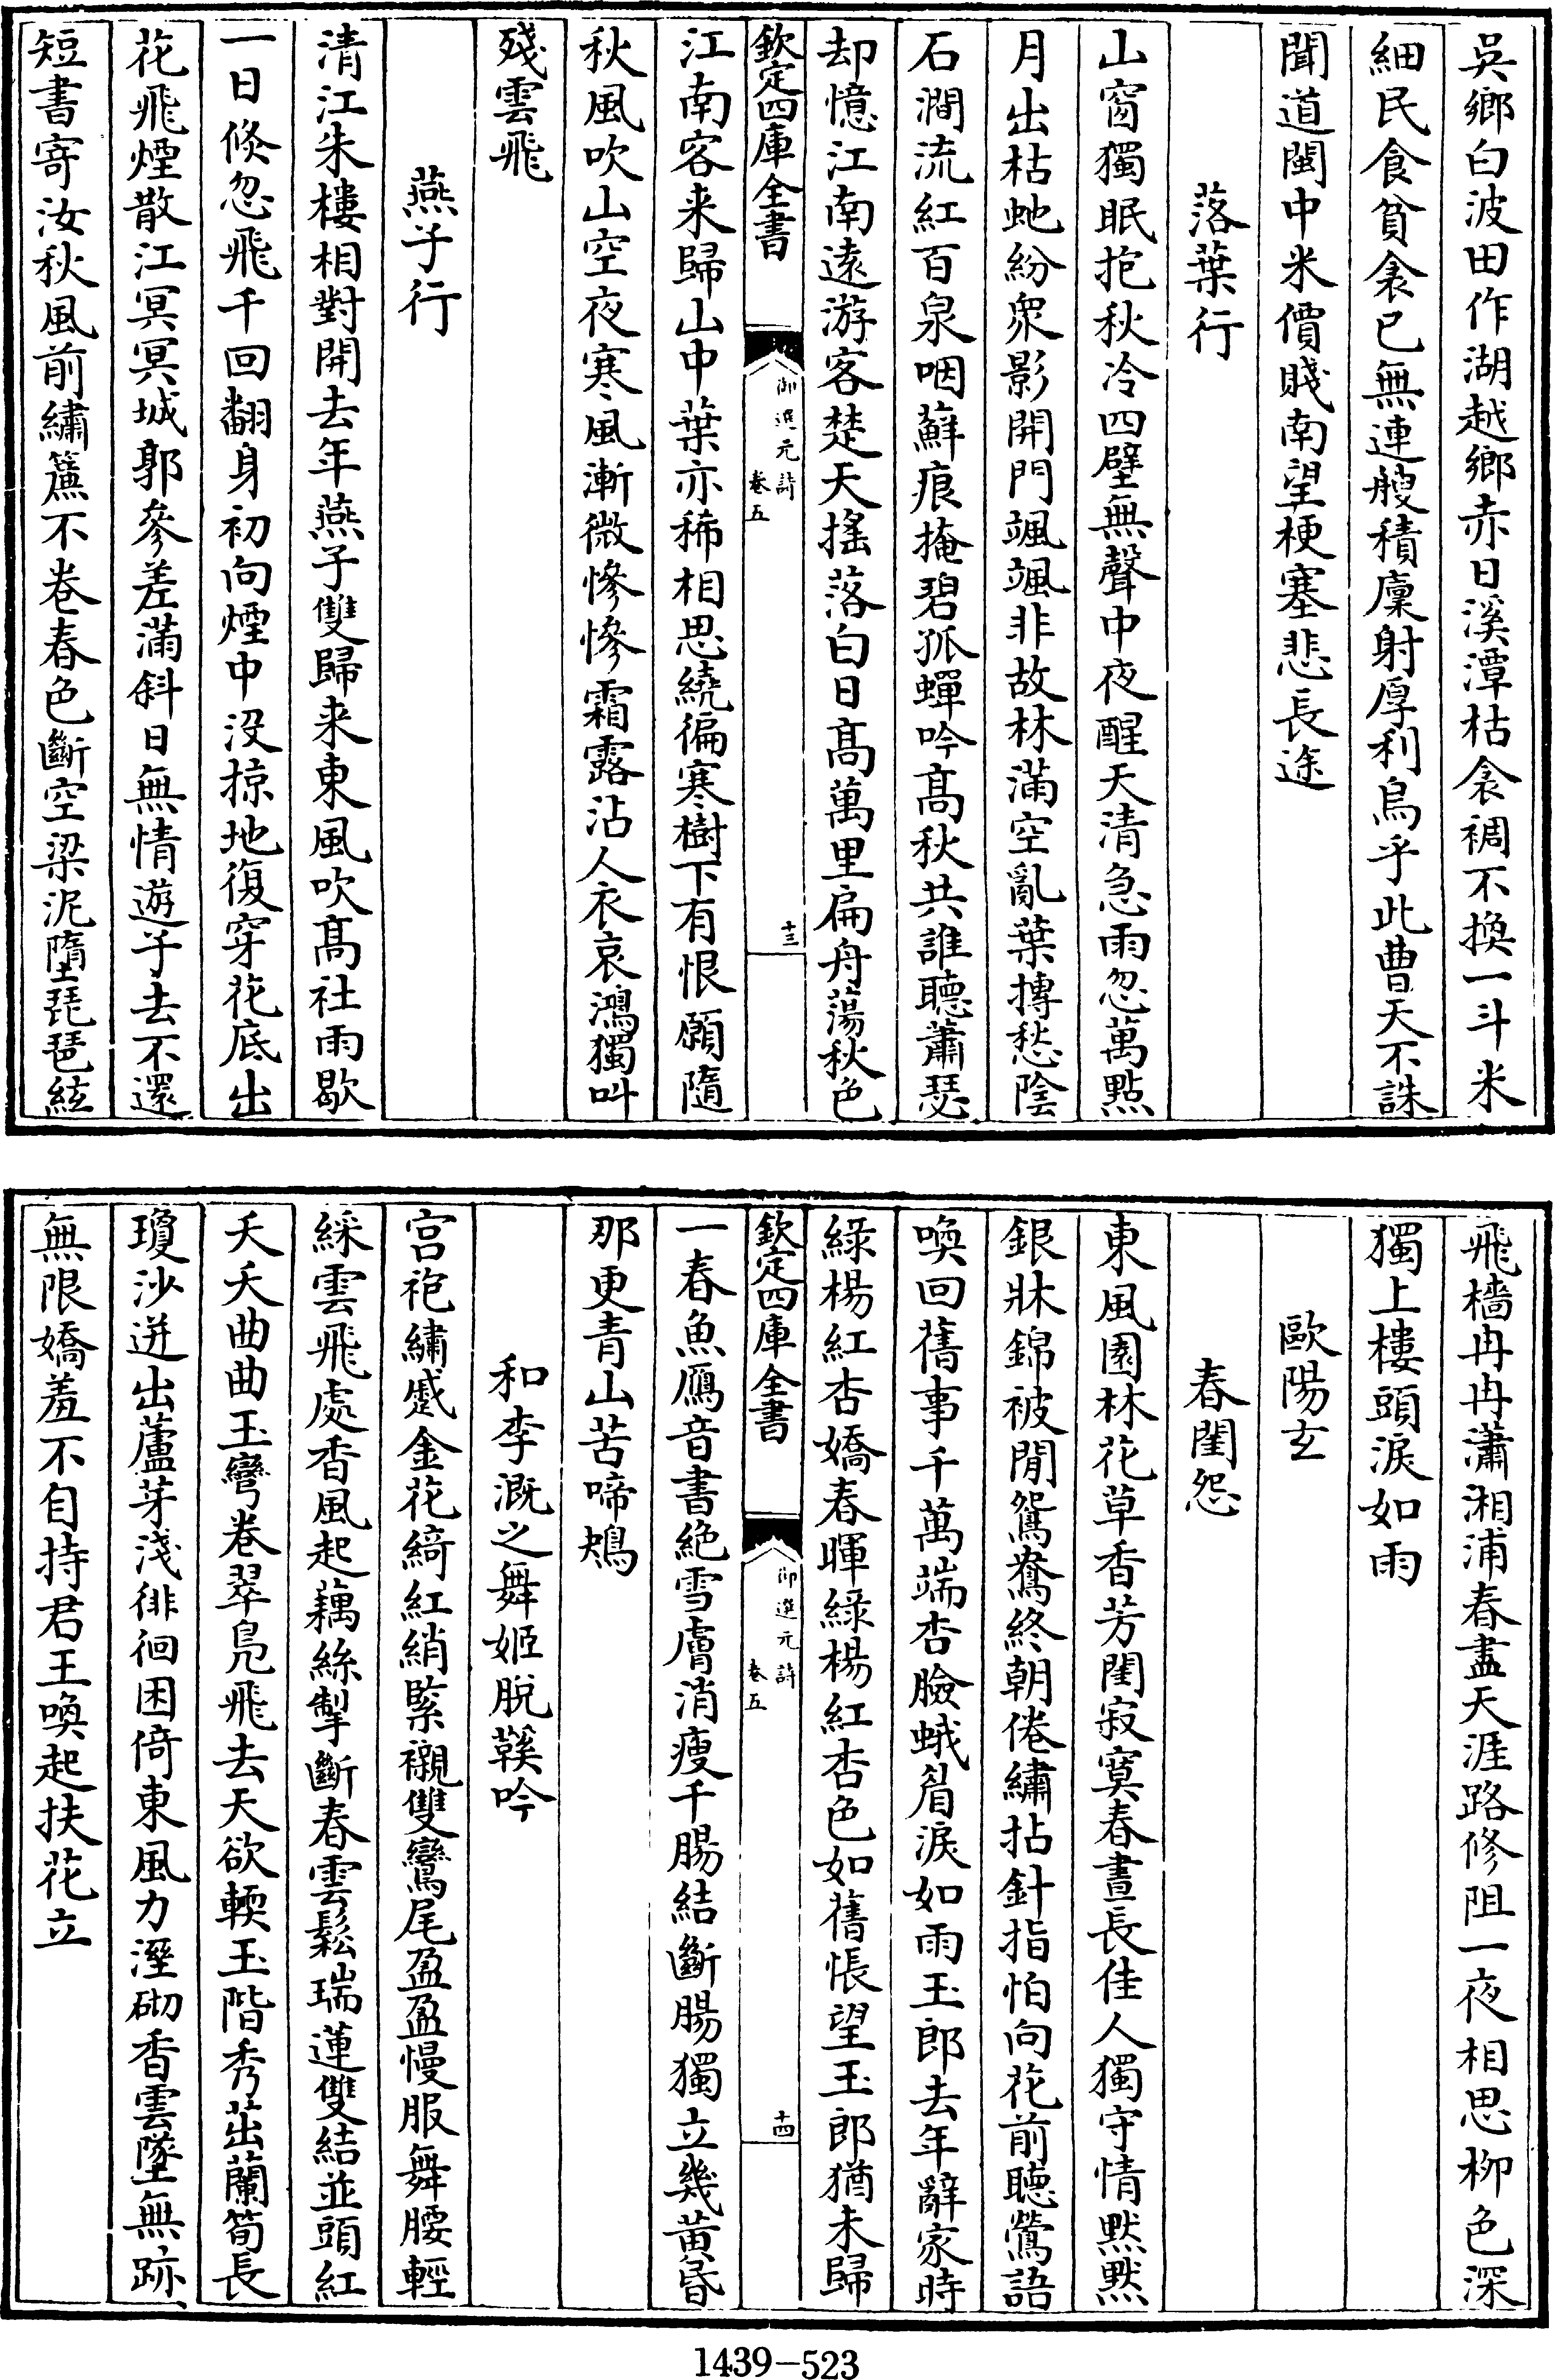 吳鄉白波田作湖越鄉赤日溪潭枯衾裯不換一斗米
細民食貧衾已無連艘積廩射厚利烏乎此曹天不誅
聞道閩中米價賤南望梗塞悲長途
落葉行
山窗獨眠抱秋冷四壁無聲中夜醒天清急雨忽萬點
月出枯虵紛衆影開門颯颯非故林滿空亂葉摶愁陰
石澗流紅百泉咽蘚痕掩碧孤蟬吟髙秋共誰聴蕭瑟
却憶江南遠游客楚天搖落白日髙萬里扁舟蕩秋色
欽定四庫全書
御選元詩
卷五
十三
江南客来歸山中葉亦稀相思繞徧寒樹下有恨願隨
秋風吹山空夜寒風漸微慘慘霜露沾人衣哀鴻獨叫
殘雲飛
燕子行
清江朱樓相對開去年燕子雙歸来東風吹髙社雨歇
一日倐忽飛千回翻身初向煙中没掠地復穿花底出
花飛煙散江冥冥城郭參差滿斜日無情遊子去不還
短書寄汝秋風前繡簾不卷春色斷空梁泥墮琵琶絃
飛檣冉冉瀟湘浦春盡天涯路修阻一夜相思柳色深
獨上樓頭淚如雨
歐陽玄
春閨怨
東風園林花草香芳閨寂寞春晝長佳人獨守情黙黙
銀牀錦被閒鴛鴦終朝倦繡拈針指怕向花前聴鶯語
喚回舊事千萬端杏臉蛾眉淚如雨玉郎去年辭家時
綠楊紅杏嬌春暉綠楊紅杏色如舊悵望玉郎猶未歸
欽定四庫全書
御選元詩
卷五
十四
一春魚鴈音書絶雪膚消瘦千腸結斷腸獨立幾黄昏
那更青山苦啼鴂
和李溉之舞姬脱鞵吟
宫袍繡蹙金花綺紅綃緊襯雙鸞尾盈盈慢服舞腰輕
綵雲飛處香風起藕絲掣斷春雲鬆瑞蓮雙結並頭紅
夭夭曲曲玉彎卷翠鳬飛去天欲輭玉階秀茁蘭筍長
瓊沙迸出蘆芽淺徘徊困倚東風力溼砌香雲墜無跡
無限嬌羞不自持君王喚起扶花立
1439—523